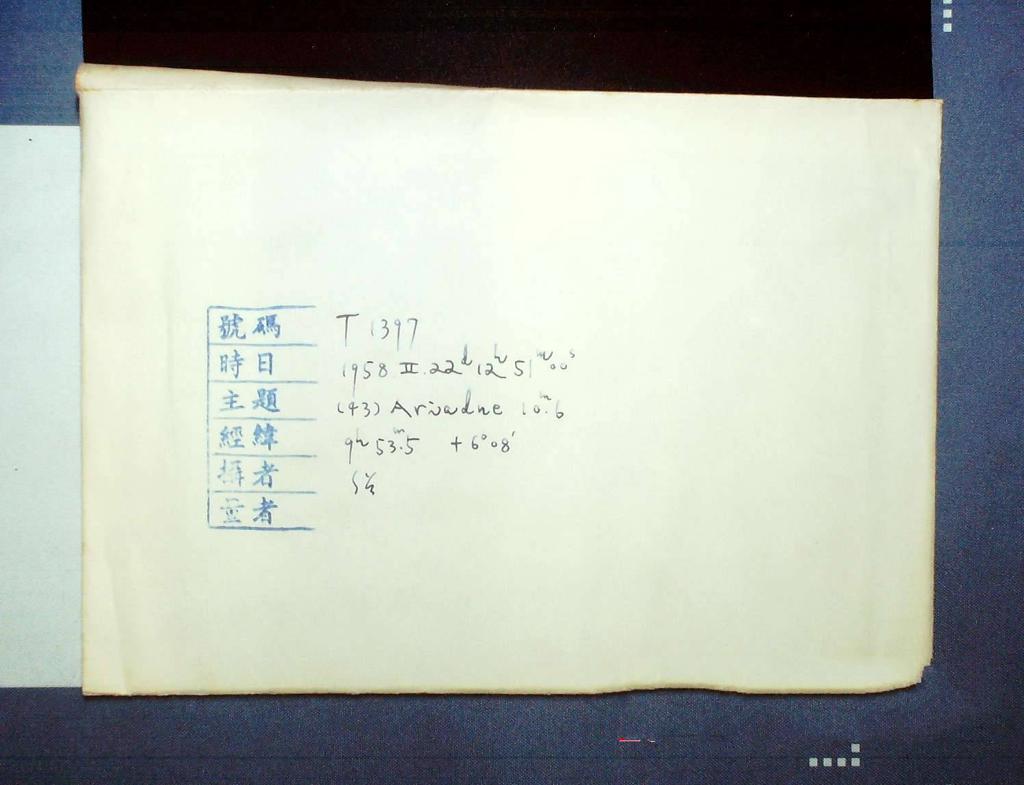 號碼 T 1397
時日 1958 II 22ᵈ 12ʰ 51ᵐ 00ˢ
主題 (43) Ariadne 10ᵐ.6
經緯 9ʰ 53ᵐ.5 +6°08′
攝者
量者